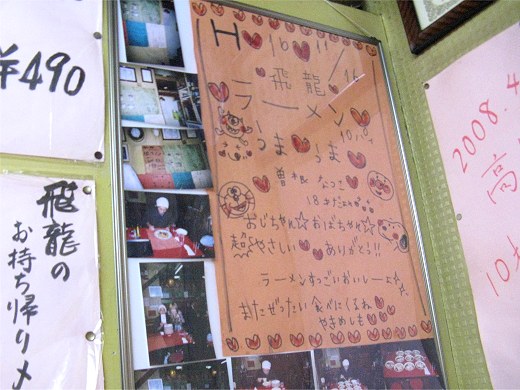 ¥490
飛龍の
お持ち帰りメ
H 16 11/16
飛龍
ラーメン
うま うま
18才だョ
おじちゃん☆おばちゃん☆
超やさしい ありがとう!!
ラーメンすっごいおいしーよ☆
またぜったい食べにくるね
やきめしも
2008.4
高
10